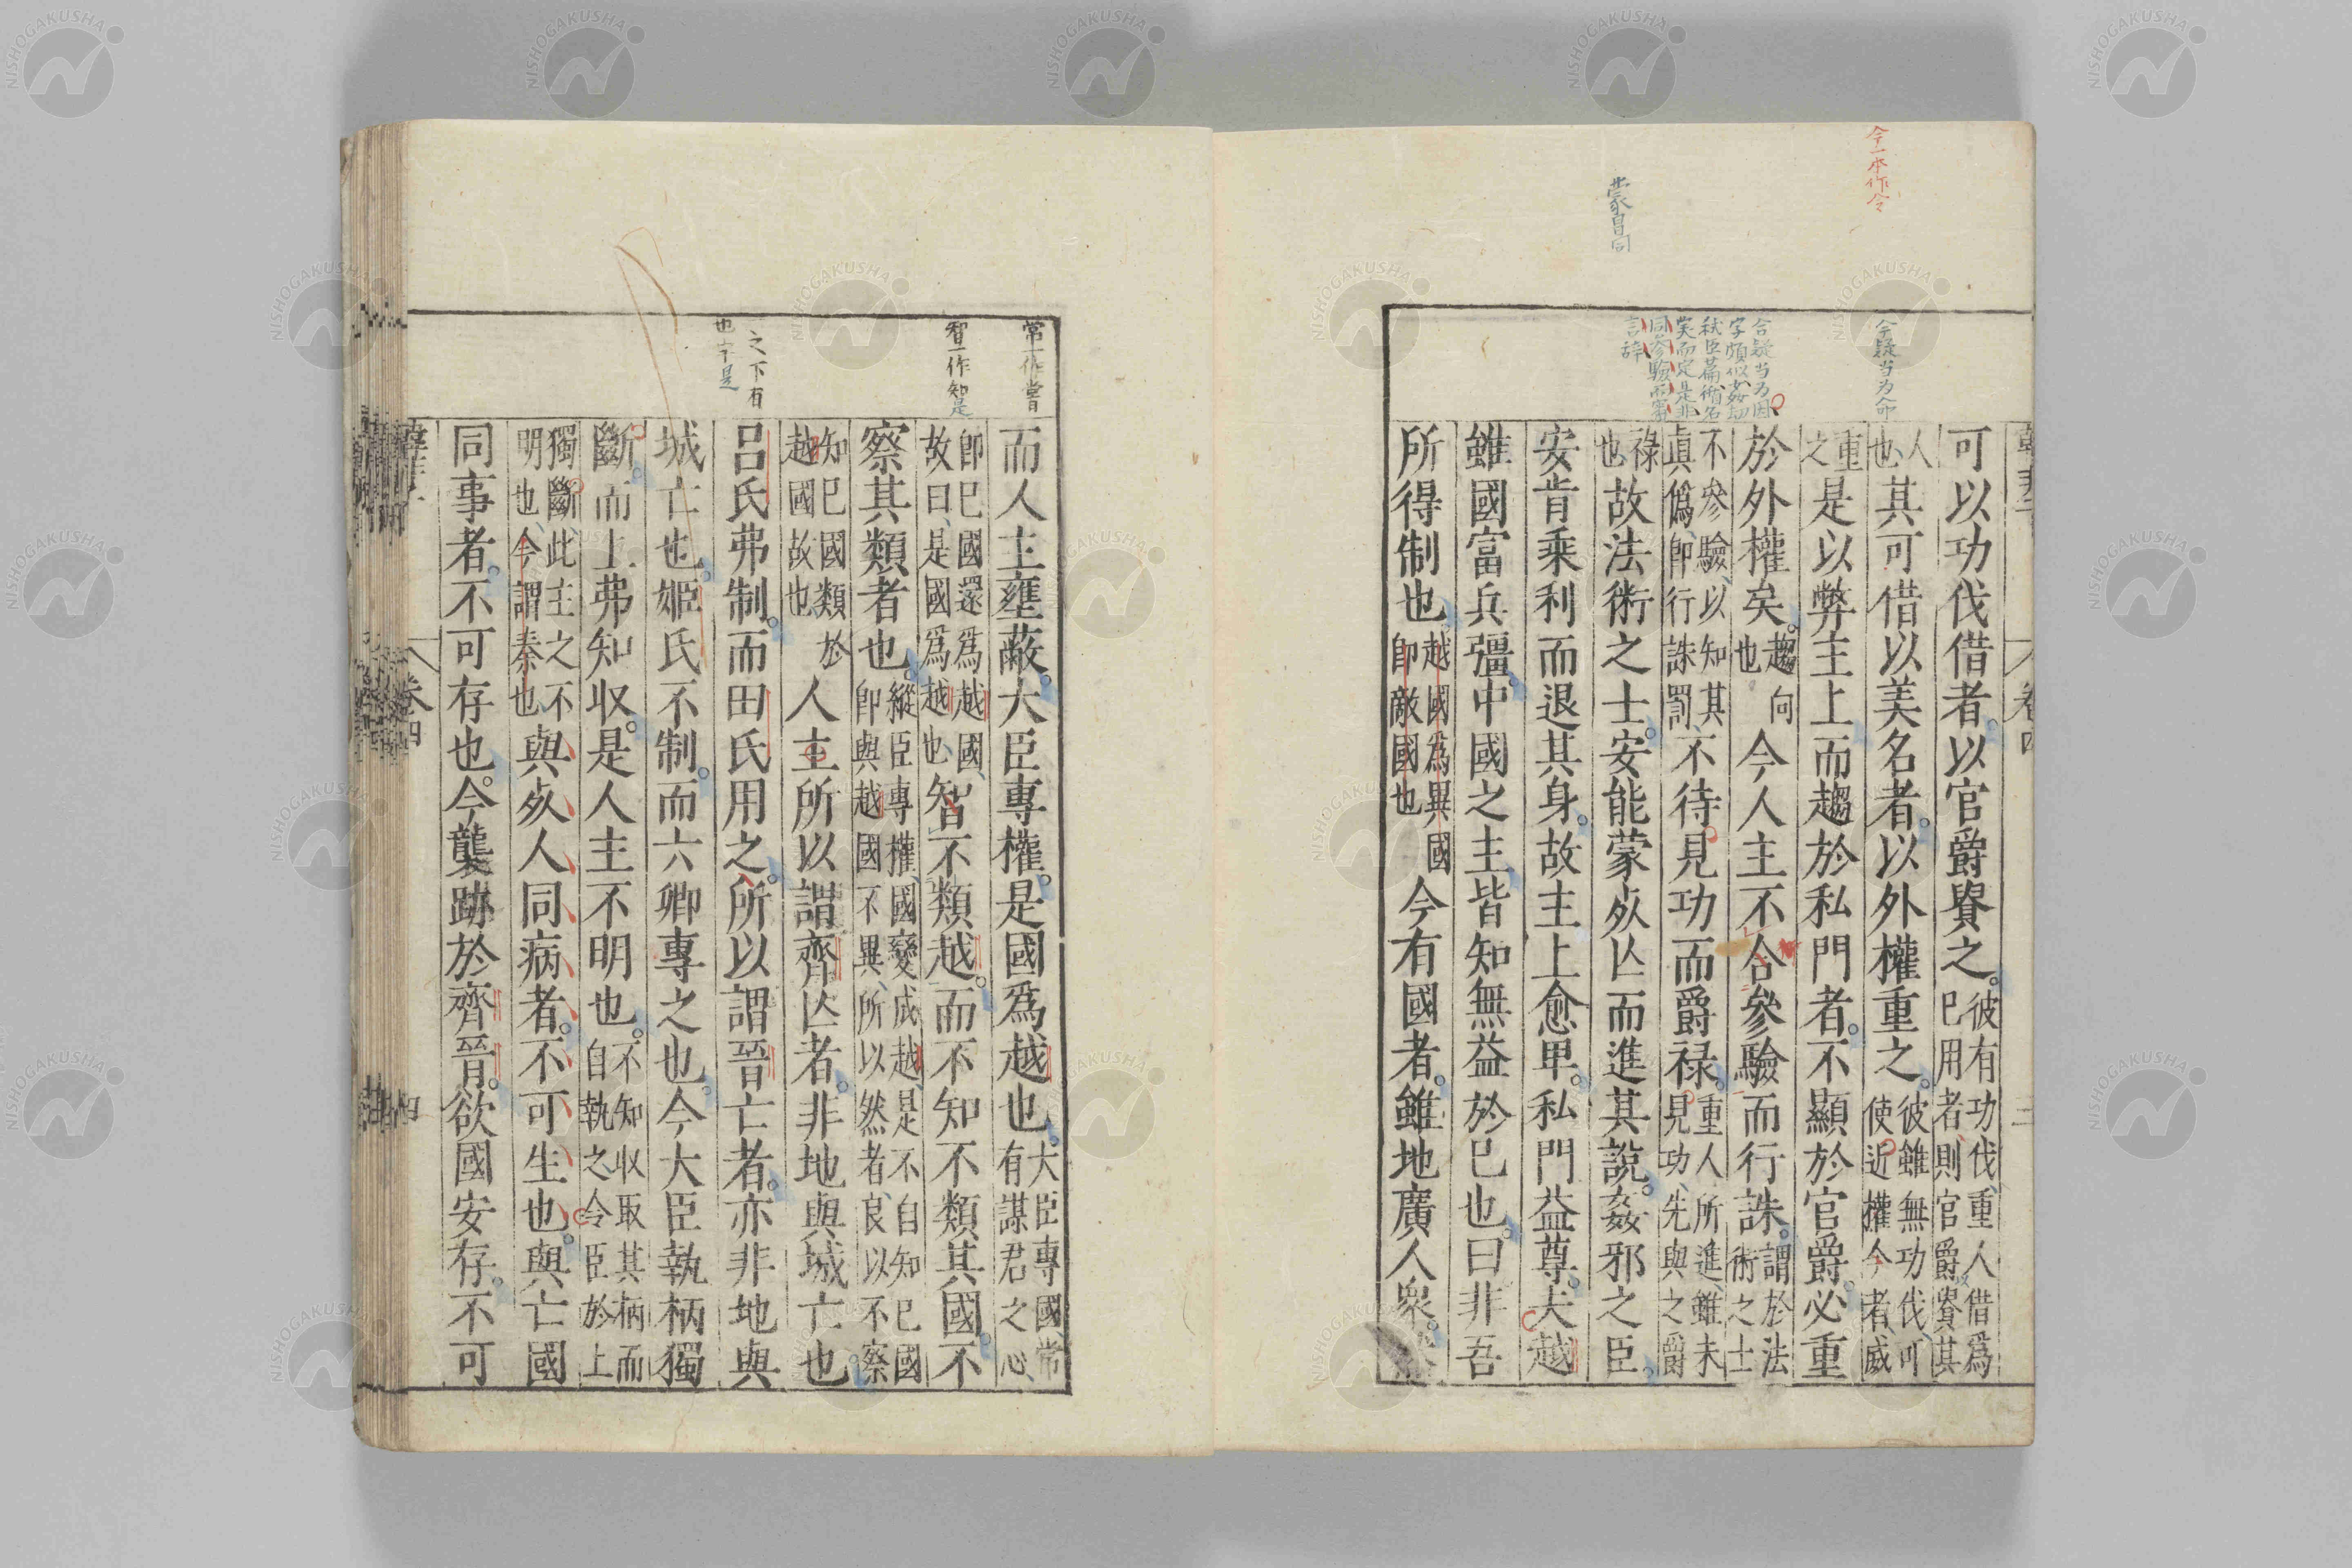 今一本作令
蒙冒同
令疑当为命
合疑当为因
字頗似姦劫
弑臣篇循名
実而定是非
同参驗而審
言辞
可以功伐借者以官爵貴之彼有功伐重人借爲
已用者則官爵貴其
人
也其可借以美名者以外權重之彼雖無功伐可
使近權令者威
重
之是以弊主上而趨於私門者不顯於官爵必重
於外權矣趨向
也今人主不合參驗而行誅謂於法
術之士
不參驗以知其
眞僞卽行誅罰不待見功而爵禄重人所進雖未
見功先與之爵
祿
也故法術之士安能蒙死亾而進其說姦邪之臣
安肯乘利而退其身故主上愈卑私門益尊夫越
雖國富兵彊中國之主皆知無益於已也曰非吾
所得制也越國爲異國
卽敵國也今有國者雖地廣人衆
卷四
常一作嘗
智一作知是
之下有
也字是
而人主壅蔽大臣專權是國爲越也大臣專國常
有謀君之心
卽已國還爲越國
故曰是國爲越也智不類越而不知不類其國不
察其類者也縱臣專權國變成越是不自知已國
卽與越國不異所以然者良以不察
知已國類於
越國故也人主所以謂齊亾者非地與城亡也
呂氏弗制而田氏用之所以謂晉亡者亦非地與
城亡也姬氏不制而六卿專之也今大臣執柄獨
斷而上弗知收是人主不明也不知收取其柄而
自執之令臣於上
獨斷此主之不
明也今謂秦也與死人同病者不可生也與亡國
同事者不可存也今襲跡於齊晉欲國安存不可
卷四